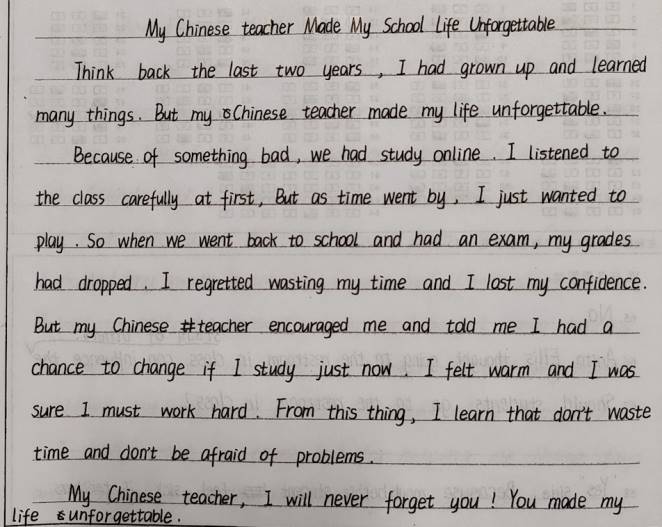 My Chinese teacher Made My School Life Unforgettable
Think back the last two years, I had grown up and learned
many things. But my Chinese teacher made my life unforgettable.
Because of something bad, we had study online. I listened to
the class carefully at first, But as time went by, I just wanted to
play. So when we went back to school and had an exam, my grades
had dropped. I regretted wasting my time and I lost my confidence.
But my Chinese teacher encouraged me and told me I had a
chance to change if I study just now. I felt warm and I was
sure I must work hard. From this thing, I learn that don't waste
time and don't be afraid of problems.
My Chinese teacher, I will never forget you! You made my
life unforgettable.